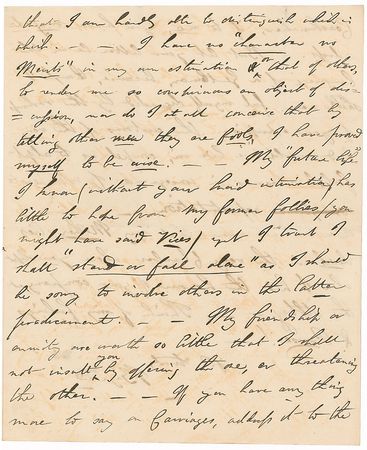 that I am hardly able to distinguish which is
which. - - I have no "character no
Merits" in my own estimation or that of others,
to render me so conspicuous an object of dis-
=cussion, nor do I at all conceive that by
telling other men they are fools, I have proved
myself to be wise. - - My "future life"
I know (without your kind intimation) has
little to hope from my former follies, (you
might have said Vices) yet I trust I
shall "stand or fall alone" as I should
be sorry to involve others in the latter
predicament. - - My friendship or
enmity are worth so little that I shall
not insult you by offering the one, or threatening
the other. - - If you have any thing
more to say on Carriages, address it to the